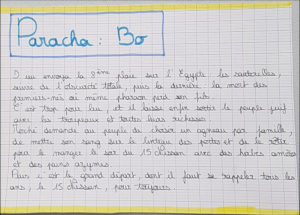 Paracha : Bo
D. envoya la 8ème plaie sur l'Egypte : les sauterelles,
suivie de l'obscurité totale, puis la dernière : la mort des
premiers-nés où même pharaon perd son fils.
C'est trop pour lui, et il laisse enfin sortir le peuple juif
avec les troupeaux et toutes leurs richesses.
Moché demande au peuple de choisir un agneau par famille,
de mettre son sang sur le linteau des portes et de le rôtir
pour le manger le soir du 15 Nissan avec des herbes amères
et des pains azymes.
Puis c'est le grand départ, dont il faut se rappeler tous les
ans, le 15 Nissan, pour toujours.